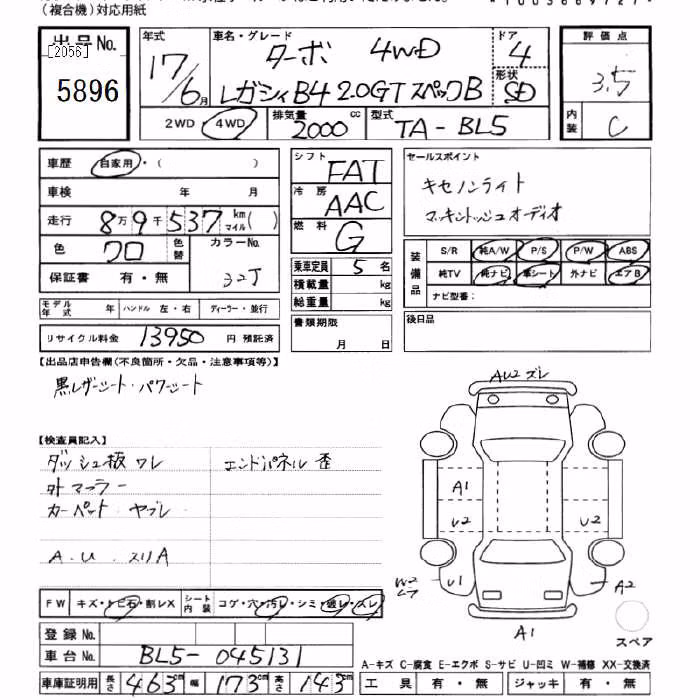 (複合機)対応用紙
出品No.
[2056]
5896
年式
17/6月
車名・グレード
ターボ 4WD
レガシィB4 2.0GTスペックB
ドア
4
形状
SD
評価点
3.5
内装
C
2WD・4WD
排気量
2000cc
型式
TA-BL5
車歴
自家用・( )
車検 年 月
走行
8万9千537km マイル( )
色
クロ
色替
カラーNo.
32J
保証書 有・無
モデル年式 年
ハンドル 左・右
ディーラー・並行
リサイクル料金 13950 円 預託済
シフト
FAT
冷房
AAC
燃料
G
乗車定員 5名
積載量 kg
総重量 kg
書類期限
月 日
セールスポイント
キセノンライト
マッキントッシュオーディオ
装備品
S/R 純A/W P/S P/W ABS
純TV 純ナビ 革シート 外ナビ エアB
ナビ型番:
後日品
【出品店申告欄(不良箇所・欠品・注意事項等)】
黒レザーシート・パワーシート
【検査員記入】
ダッシュ板ワレ エンドパネル歪
外マフラー
カーペット ヤブレ
A.U.スリA
AU2 ズレ
A1
U2
U2
W2
U1
A2
A1
スペア
FW キズ・トビ石・割レX
シート内装 コゲ・穴・汚レ・シミ・破レ・スレ
登録No.
車台No. BL5-045131
車庫証明用 長さ 463cm 幅 173cm 高さ 143cm
A-キズ C-腐食 E-エクボ S-サビ U-凹ミ W-補修 XX-交換済
工具 有・無 ジャッキ 有・無